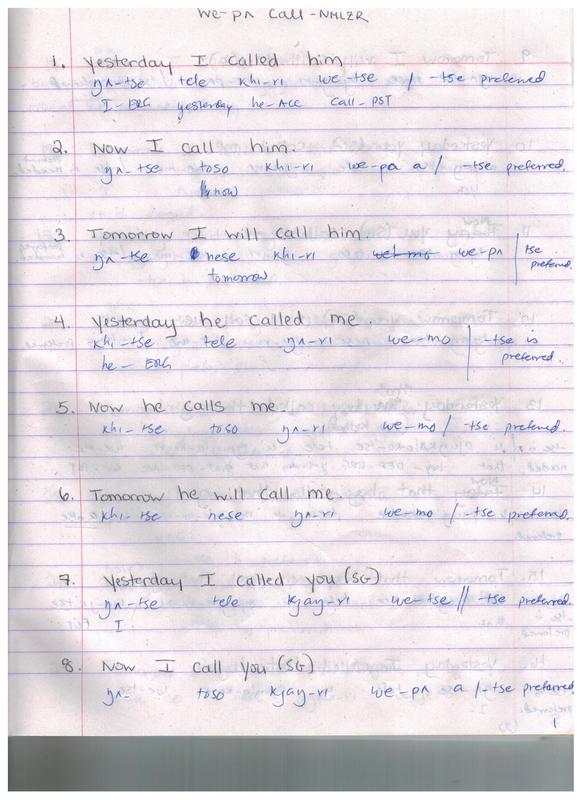 we-pʌ call-NMLZR
1. Yesterday I called him
ŋʌ-tse tele khi-ri we-tse / -tse preferred
I-ERG yesterday he-ACC call-PST
2. Now I call him.
ŋʌ-tse toso khi-ri we-pa a / -tse preferred.
now
3. Tomorrow I will call him.
ŋʌ-tse nese khi-ri we-mo we-pʌ | tse preferred.
tomorrow
4. Yesterday he called me.
khi-tse tele ŋʌ-ri we-mo | -tse is preferred.
he-ERG
5. Now he calls me.
khi-tse toso ŋʌ-ri we-mo / -tse preferred.
6. Tomorrow he will call me.
khi-tse nese ŋʌ-ri we-mo / -tse preferred.
7. Yesterday I called you (SG)
ŋʌ-tse tele kjay-ri we-tse // -tse preferred.
I
8. Now I call you (SG)
ŋʌ- toso kjay-ri we-pʌ a /-tse preferred
1